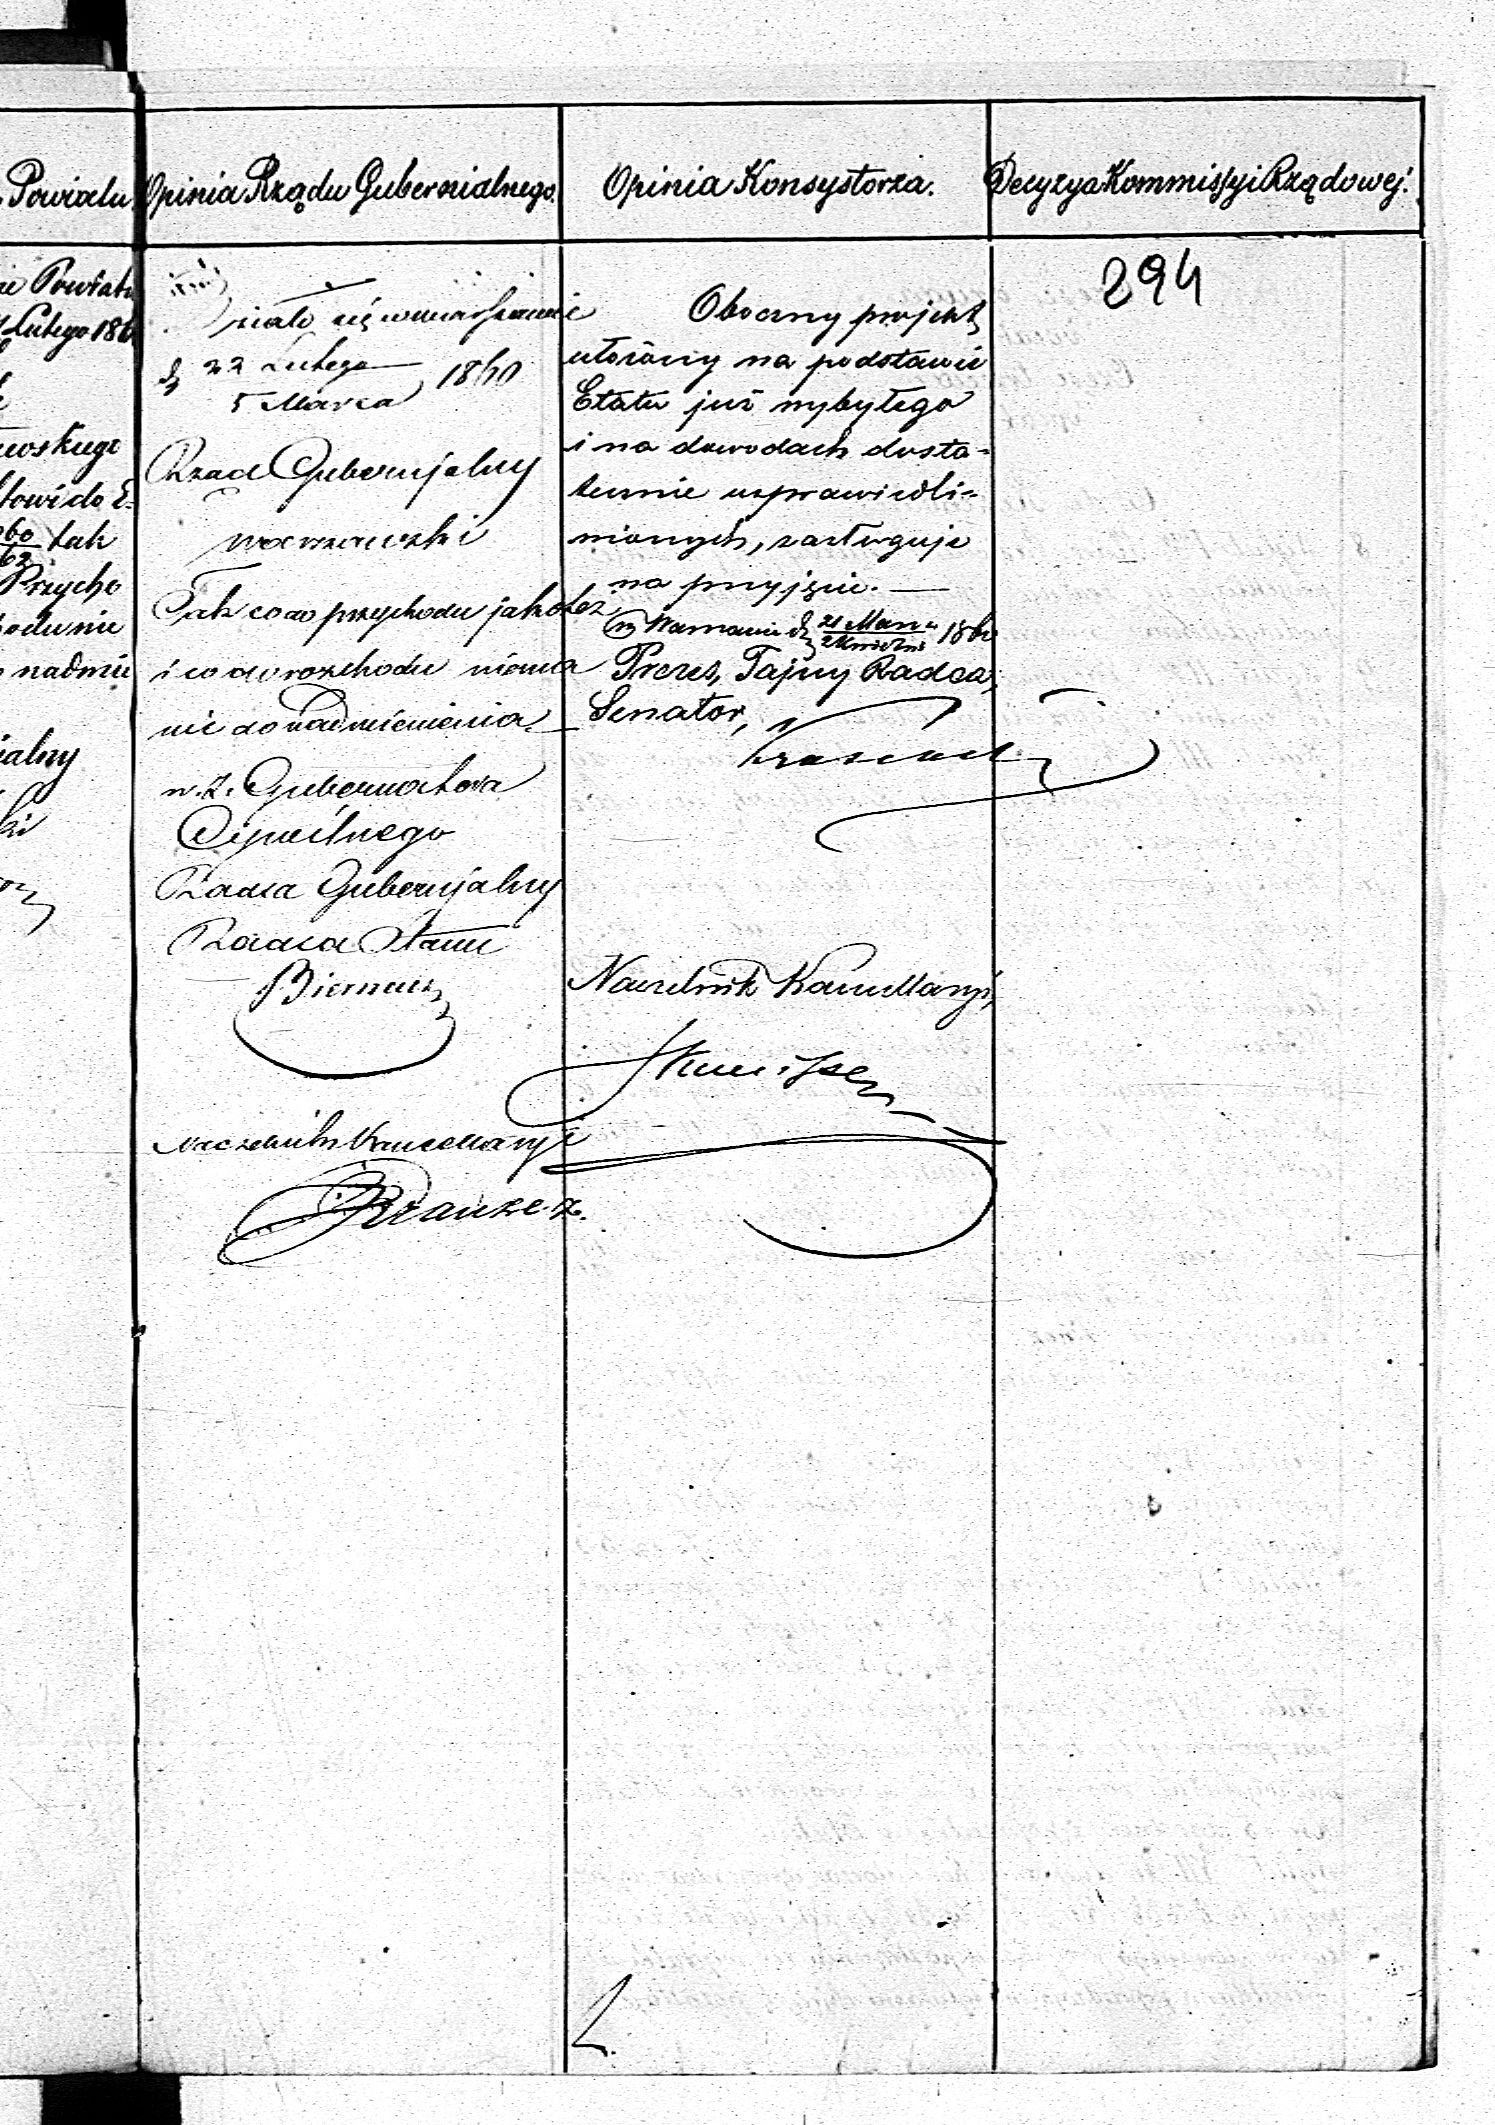 Powiatu
Opinia Rządu Gubernialnego.
Opinia Konsystorza.
Decyzya Kommissyi Rządowej.
294
Powiatu
Lutego 186
ewskiego
towi do E-
060/62 tak
Przycho
odu nie
nadmie
ialny
ki
Działo się w Warszawie
d. 22 Lutego / 5 Marca 1860
Rząd Gubernjalny
Warszawski
Tak co do przychodu jako też
i co do rozchodu niema
nic do nadmienienia
w. z. Gubernatora
Cywilnego
Radca Gubernjalny
Radca Stanu
Biernacki
Naczelnik Kancellaryi
Krauze z.
Oboczny projekt
ułożony na podstawie
Etatu już wybyłego
i na dowodach dosta-
tecznie usprawiedli-
wionych, zasługuje
na przyjęcie.
w Warszawie d. 21 Marca / 2 Kwietnia 1860
Prezes, Tajny Radca,
Senator,
Naczelnik Kancellaryi,